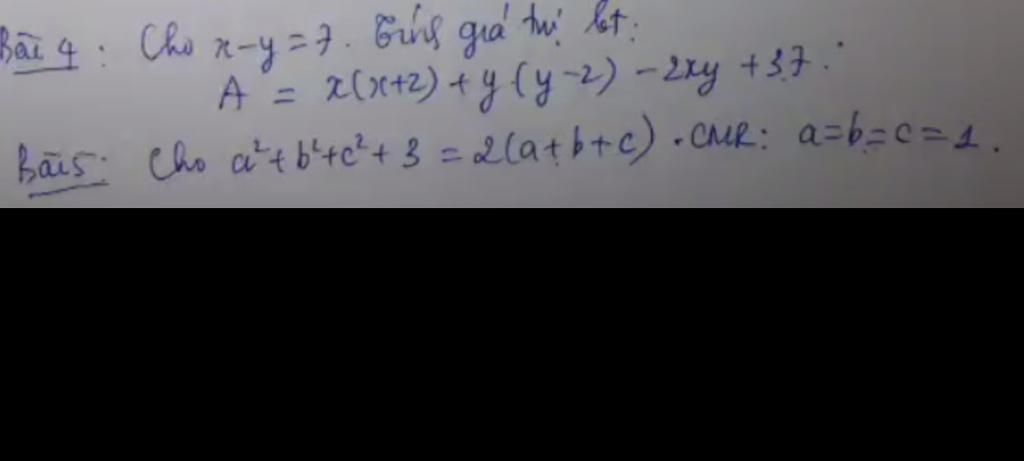 Bài 4 : Cho x-y = 7. Tính giá trị bt:
A = x(x+2) + y(y-2) - 2xy + 37.
Bài 5: Cho a²+b²+c²+3 = 2(a+b+c). CMR: a=b=c=1.